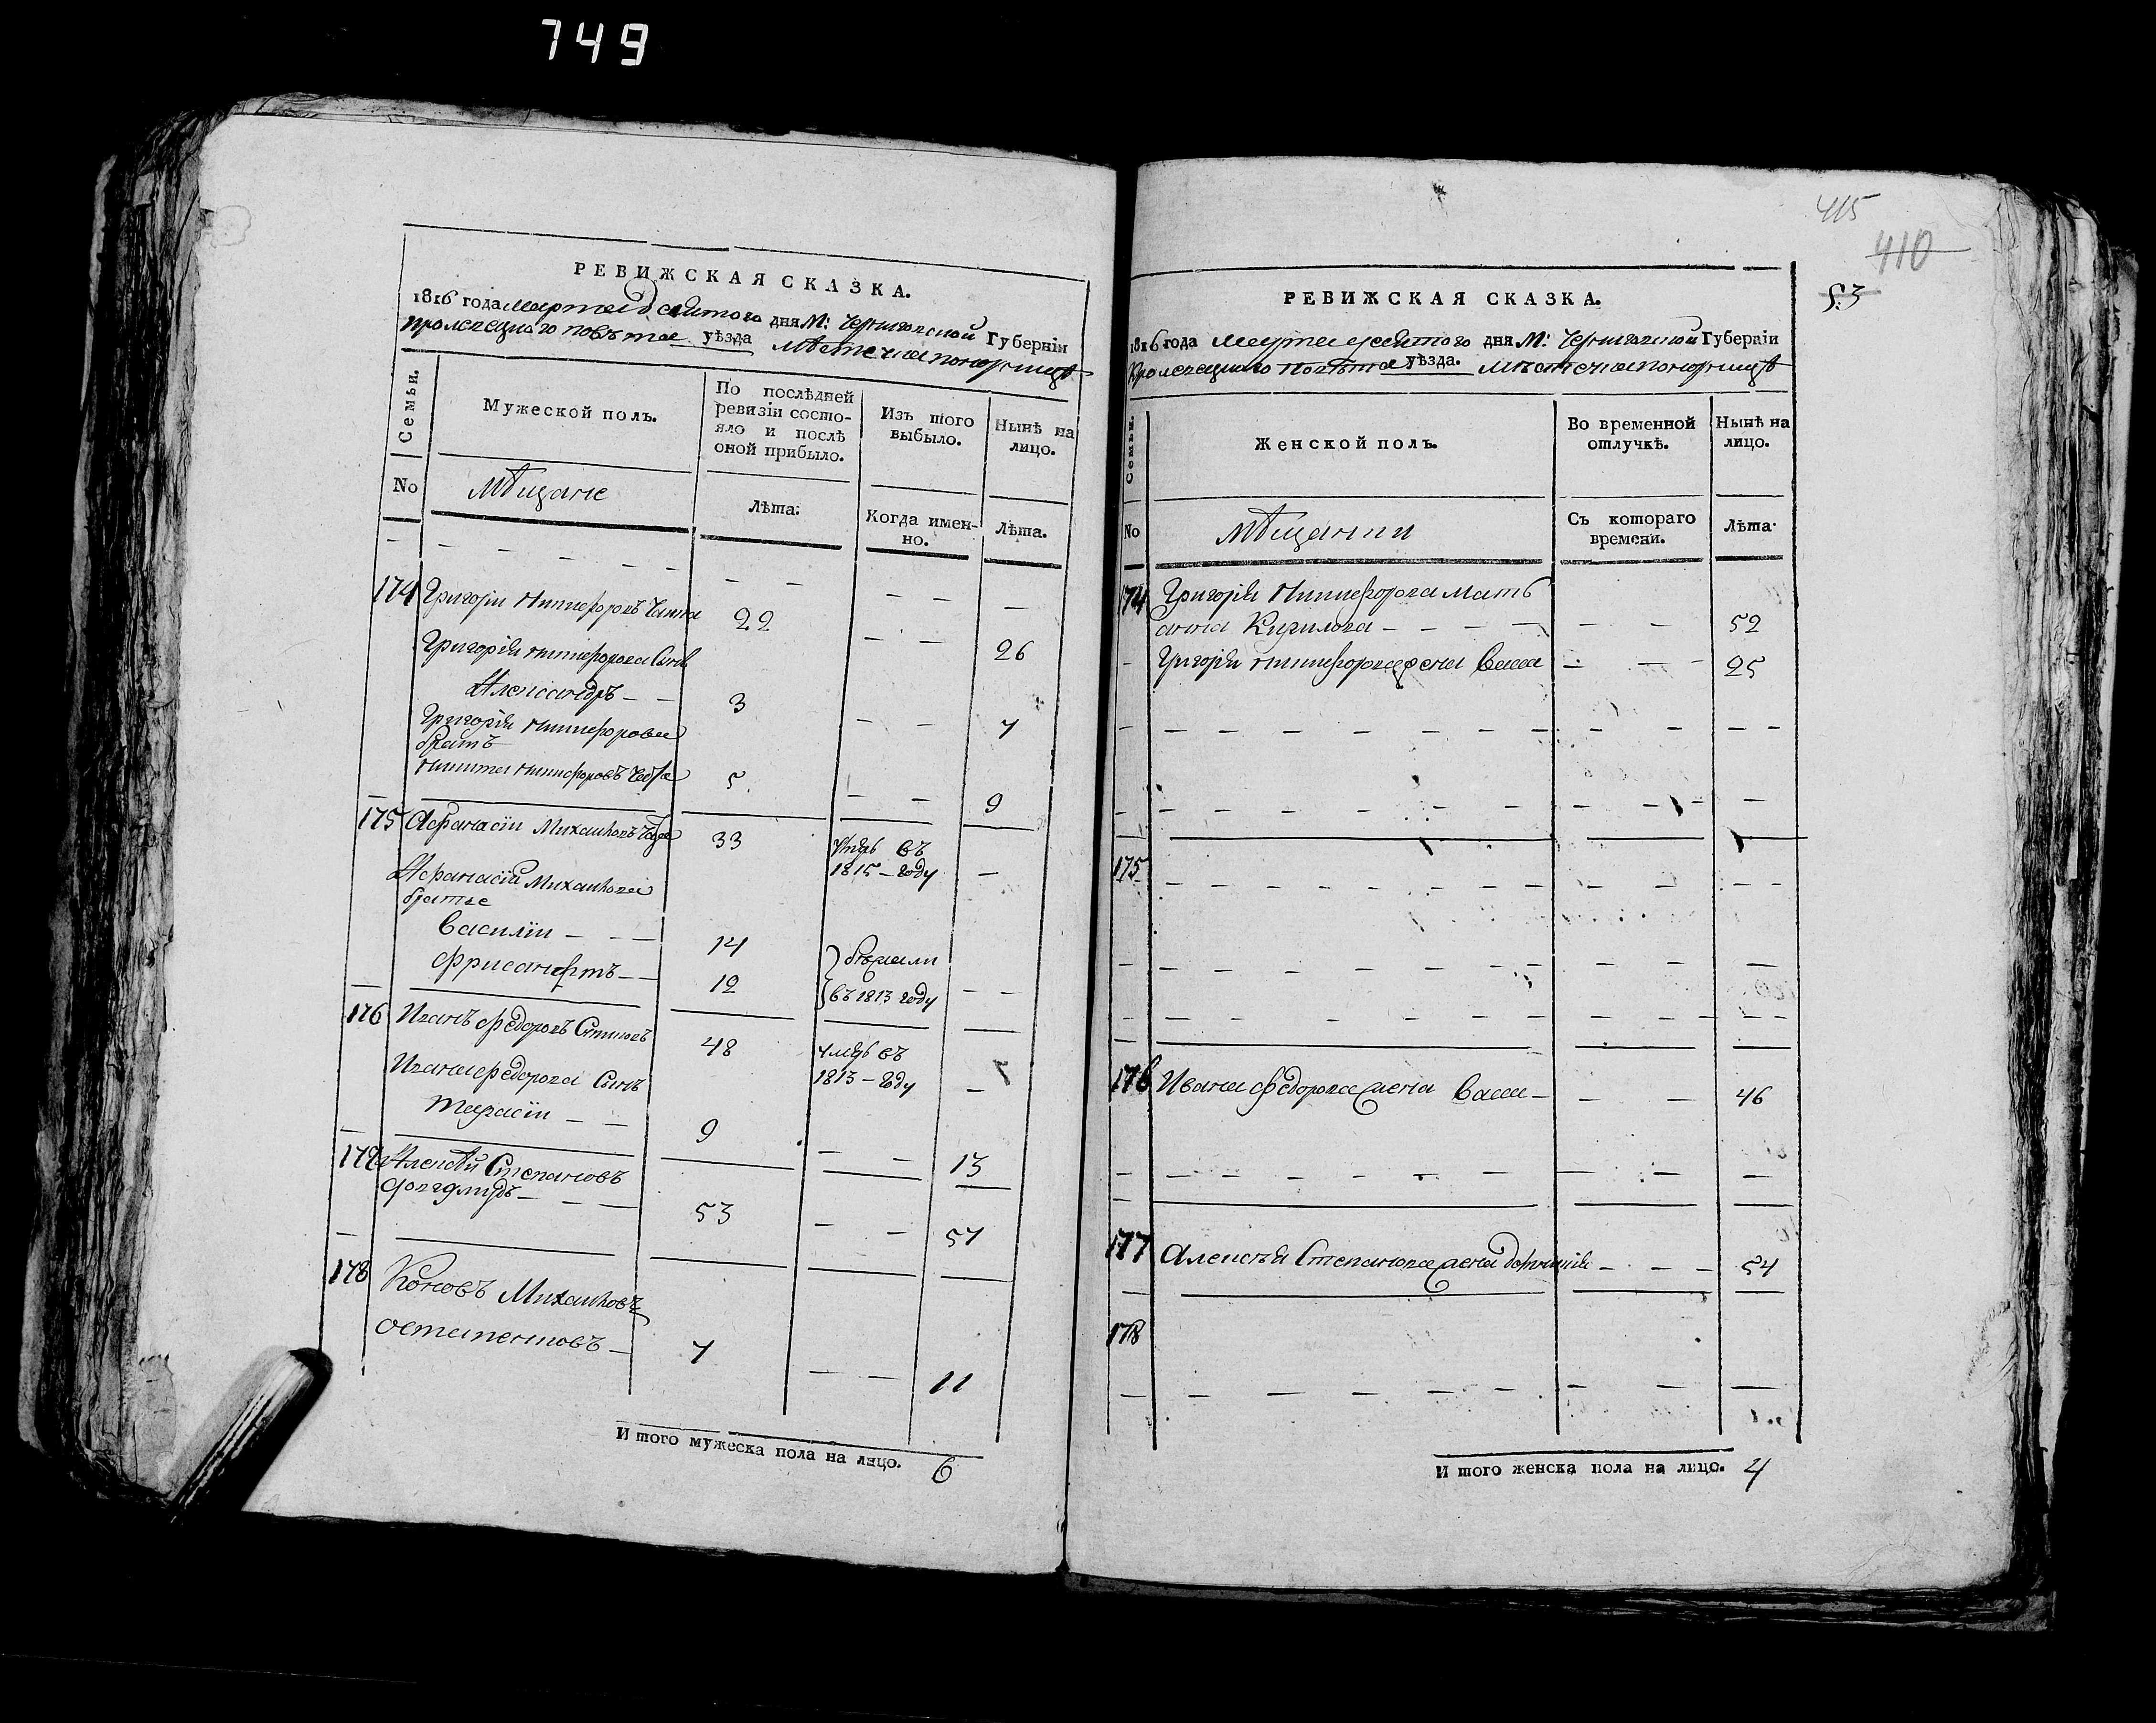 749
РЕВИЖСКАЯ СКАЗКА.
1816 года марта десятого дня М: Черниговской Губерніи
Кролевецкаго повѣта уѣзда мѣстечка понорницѣ
Семьи.
Мужеской полъ.
По послѣдней ревизіи состояло и послѣ оной прибыло.
Изъ того выбыло.
Нынѣ на лицо.
No
Мѣщане
Лѣта.
Когда именно.
Лѣта.
174 Григоріи Никифоровъ 22
26
Григорія Никифорова Сынъ
Александръ 3
7
Григорія Никифорова
братъ
Никита Никифоровъ 5
9
175 Афанасіи Михайловъ 33 умре въ
1815 году
Афанасія Михайлова
братье
Василіи 14 бѣжали
Фрисанфтъ 12 въ 1813 году
176 Иванъ Федоровъ 48 умре въ
1813 году
Ивана Федорова Сынъ
Тарасіи 9
13
177 Алексѣй Степановъ
53
57
178 Михайловъ
7
11
И того мужеска пола на лицо. 6
415
410
53
РЕВИЖСКАЯ СКАЗКА.
1816 года марта десятого дня М: Черниговской Губерніи
Кролевецкаго повѣта уѣзда. мѣстечка понорницѣ
Семьи.
Женской полъ.
Во временной отлучкѣ.
Нынѣ на лицо.
No
мѣщанки
Съ котораго времени.
Лѣта.
174 Григорія Никифорова мать
анна Кирилова 52
Григорія Никифорова жена 25
175
176 Ивана Федорова жена 46
177 Алексѣя Степанова жена 54
178
И того женска пола на лицо. 4